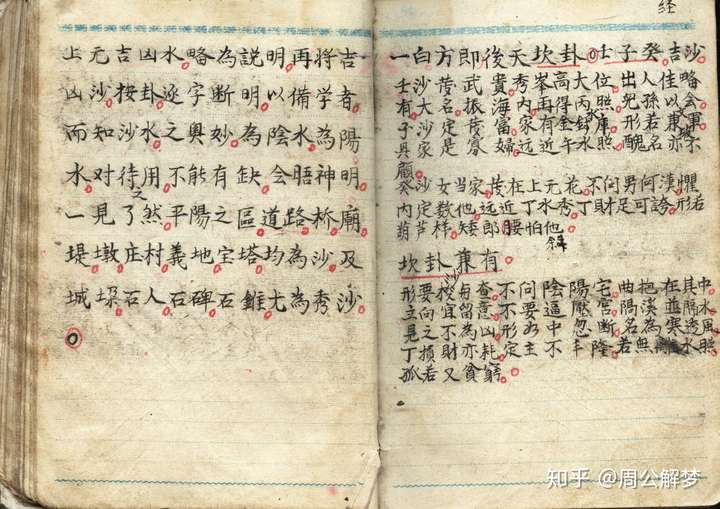 经
上元吉凶水略為說明再将吉
凶沙按卦逐字断明以備学者
而知沙水之奧妙為陰水為陽
水对待用不能有缺会晤神明
之
一見了然平陽之區道路桥廟
堤墩庄村義地宝塔均為沙及
城垛石人石碑石錐尤為秀沙
一白方即後天坎卦壬子癸吉沙
壬沙武貴秀峯高大位出人佳略
有大名振海内再得丙照兒孫以会
子沙定富家有金水形若兼
具家是寡婦远近午照醜名亦不
顧
癸沙女当家在上元花不问男何漢懼
内定数他远近水秀丁財足可誇形若
葫芦样矮郎腰怕他
坎卦兼有
形要按每奋不问陰陽宅曲抱在其中
立向宜留意不要逼壓宮隔溪並隔水
見之不為凶形如中忽断名為寒透風
丁損財亦耗定主不丰隆若無離水照
孤若又貧窮
知乎 @周公解梦